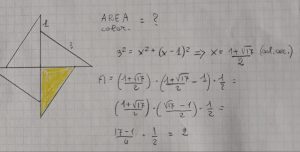 1
3
AREA
color. = ?
3² = x² + (x-1)² ⇒ x = (1+√17)/2 (sol. acc.)
A = ((1+√17)/2) · ((1+√17)/2 - 1) · 1/2 =
((1+√17)/2) · ((√17-1)/2) · 1/2 =
(17-1)/4 · 1/2 = 2